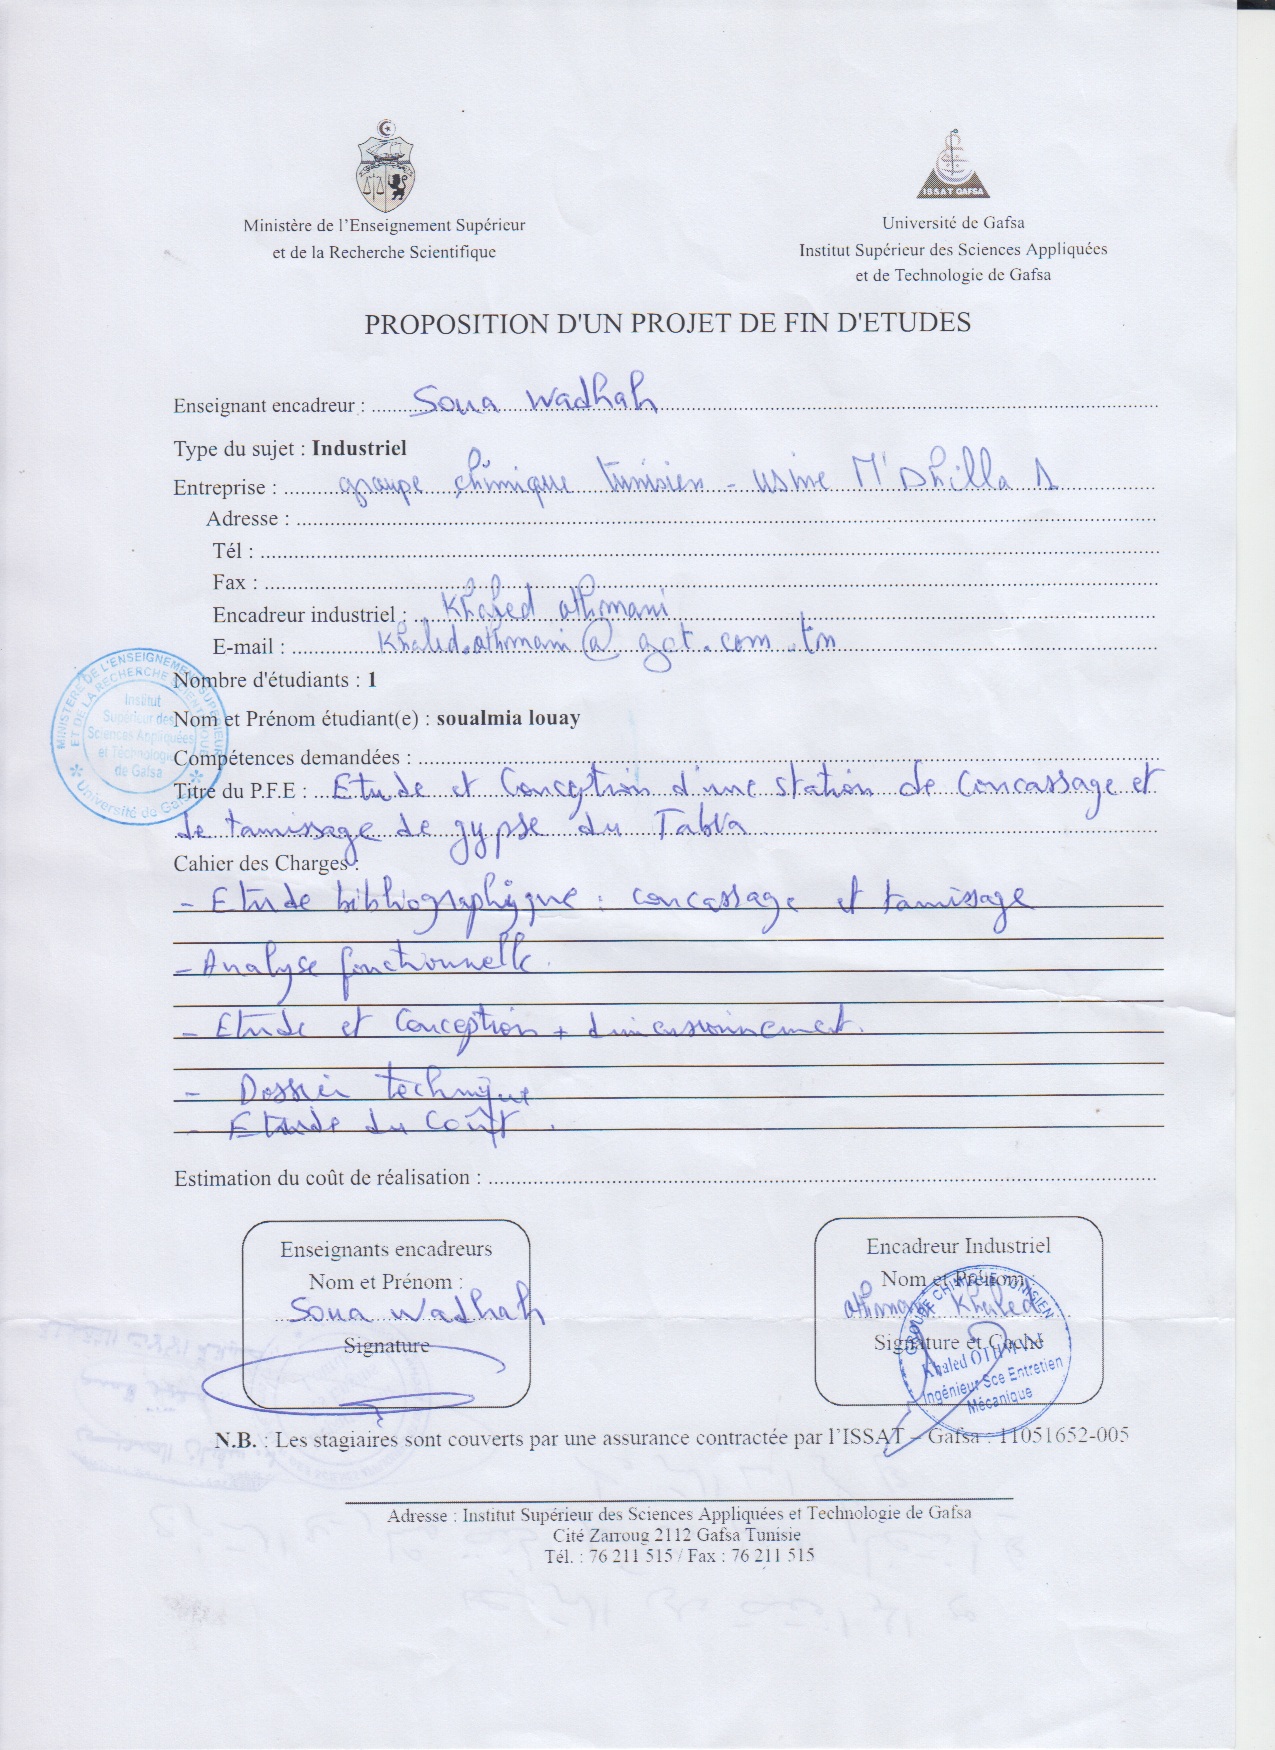 Ministère de l'Enseignement Supérieur
et de la Recherche Scientifique
ISSAT GAFSA
Université de Gafsa
Institut Supérieur des Sciences Appliquées
et de Technologie de Gafsa
PROPOSITION D'UN PROJET DE FIN D'ETUDES
Enseignant encadreur : Soua Wadhah
Type du sujet : Industriel
Entreprise : groupe chimique tunisien - usine M'Dhilla 1
Adresse :
Tél :
Fax :
Encadreur industriel : Khaled othmani
E-mail : Khaled.othmani@gct.com.tn
Nombre d'étudiants : 1
Nom et Prénom étudiant(e) : soualmia louay
Compétences demandées :
Titre du P.F.E : Etude et Conception d'une station de Concassage et
de tamissage de gypse du Tabva
Cahier des Charges :
- Etude bibliographique : concassage et tamissage
- Analyse fonctionnelle.
- Etude et Conception + dimensionnement.
- Dossier technique
- Etude du Coût.
Estimation du coût de réalisation :
Enseignants encadreurs
Nom et Prénom :
Soua Wadhah
Signature
Encadreur Industriel
Nom et Prénom :
othmani Khaled
Signature et Cachet
MINISTERE DE L'ENSEIGNEMENT SUPERIEUR
ET DE LA RECHERCHE SCIENTIFIQUE
Institut
Supérieur des
Sciences Appliquées
et Technologie
de Gafsa
Université de Gafsa
GROUPE CHIMIQUE TUNISIEN
Khaled OTHMANI
Ingénieur Sce Entretien
Mécanique
N.B. : Les stagiaires sont couverts par une assurance contractée par l'ISSAT – Gafsa : 11051652-005
Adresse : Institut Supérieur des Sciences Appliquées et Technologie de Gafsa
Cité Zarroug 2112 Gafsa Tunisie
Tél. : 76 211 515 / Fax : 76 211 515